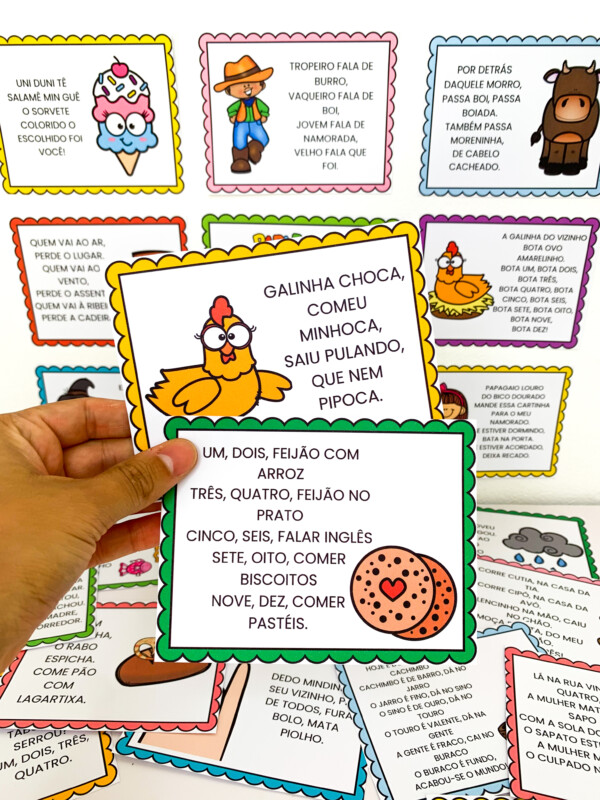 UNI DUNI TÊ
SALAMÊ MIN GUÊ
O SORVETE
COLORIDO O
ESCOLHIDO FOI
VOCÊ!
TROPEIRO FALA DE
BURRO,
VAQUEIRO FALA DE
BOI,
JOVEM FALA DE
NAMORADA,
VELHO FALA QUE
FOI.
POR DETRÁS
DAQUELE MORRO,
PASSA BOI, PASSA
BOIADA.
TAMBÉM PASSA
MORENINHA,
DE CABELO
CACHEADO.
QUEM VAI AO AR,
PERDE O LUGAR.
QUEM VAI AO
VENTO,
PERDE O
QUEM VAI À
PERDE A CADEIR.
A GALINHA DO VIZINHO
BOTA OVO
AMARELINHO.
BOTA UM, BOTA DOIS,
BOTA TRÊS,
BOTA QUATRO, BOTA
CINCO, BOTA SEIS,
BOTA SETE, BOTA OITO,
BOTA NOVE,
BOTA DEZ!
GALINHA CHOCA,
COMEU
MINHOCA,
SAIU PULANDO,
QUE NEM
PIPOCA.
PAPAGAIO LOURO
DO BICO DOURADO
MANDE ESSA CARTINHA
PARA O MEU
NAMORADO.
E ESTIVER DORMINDO,
BATA NA PORTA.
E ESTIVER ACORDADO,
DEIXA RECADO.
UM, DOIS, FEIJÃO COM
ARROZ
TRÊS, QUATRO, FEIJÃO NO
PRATO
CINCO, SEIS, FALAR INGLÊS
SETE, OITO, COMER
BISCOITOS
NOVE, DEZ, COMER
PASTÉIS.
CORRE CUTIA, NA CASA DA
TIA.
CORRE CIPÓ, NA CASA DA
AVÓ.
LENCINHO NA MÃO, CAIU
NO CHÃO.
MOÇA DO MEU
O RABO
ESPICHA.
COME PÃO
COM
LAGARTIXA.
DEDO MINDIN
SEU VIZINHO, P
DE TODOS, FURA
BOLO, MATA
PIOLHO.
CACHIMBO
CACHIMBO É DE BARRO, DÁ NO
JARRO
O JARRO É FINO, DÁ NO SINO
O SINO É DE OURO, DÁ NO
TOURO
O TOURO É VALENTE, DÁ NA
GENTE
A GENTE É FRACO, CAI NO
BURACO
O BURACO É FUNDO,
ACABOU-SE O MUNDO
LÁ NA RUA VIN
QUATRO,
A MULHER MAT
SAPO
COM A SOLA DO
O SAPATO ESTU
A MULHER M
O CULPADO N
SERROT
UM, DOIS, TRÊS,
QUATRO.